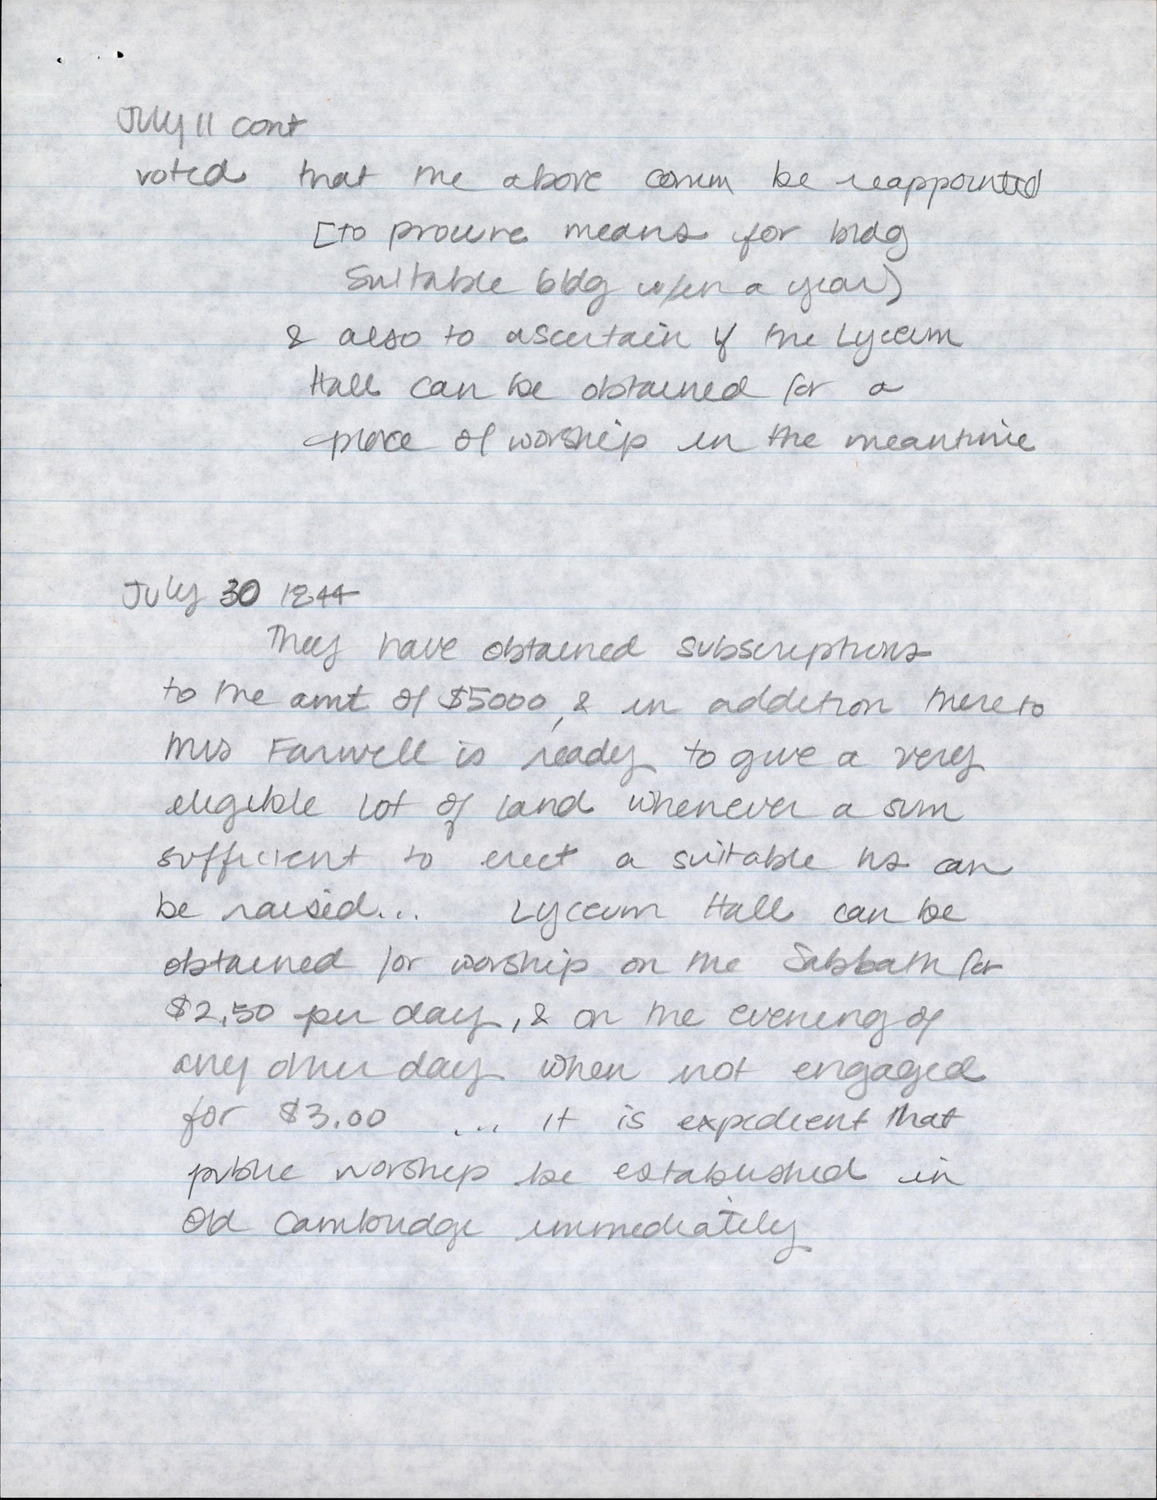 July 11 cont
voted that the above comm be reappointed
[to procure means for bldg
suitable bldg w/in a year)
& also to ascertain if the Lyceum
Hall can be obtained for a
place of worship in the meantime
July 30 1844
They have obtained subscriptions
to the amt of $5000, & in addition thereto
Mrs Farwell is ready to give a very
eligible lot of land whenever a sum
sufficient to erect a suitable hs can
be raised... Lyceum Hall can be
obtained for worship on the Sabbath for
$2.50 per day, & on the evening of
any other day when not engaged
for $3.00 ... it is expedient that
public worship be established in
Old Cambridge immediately